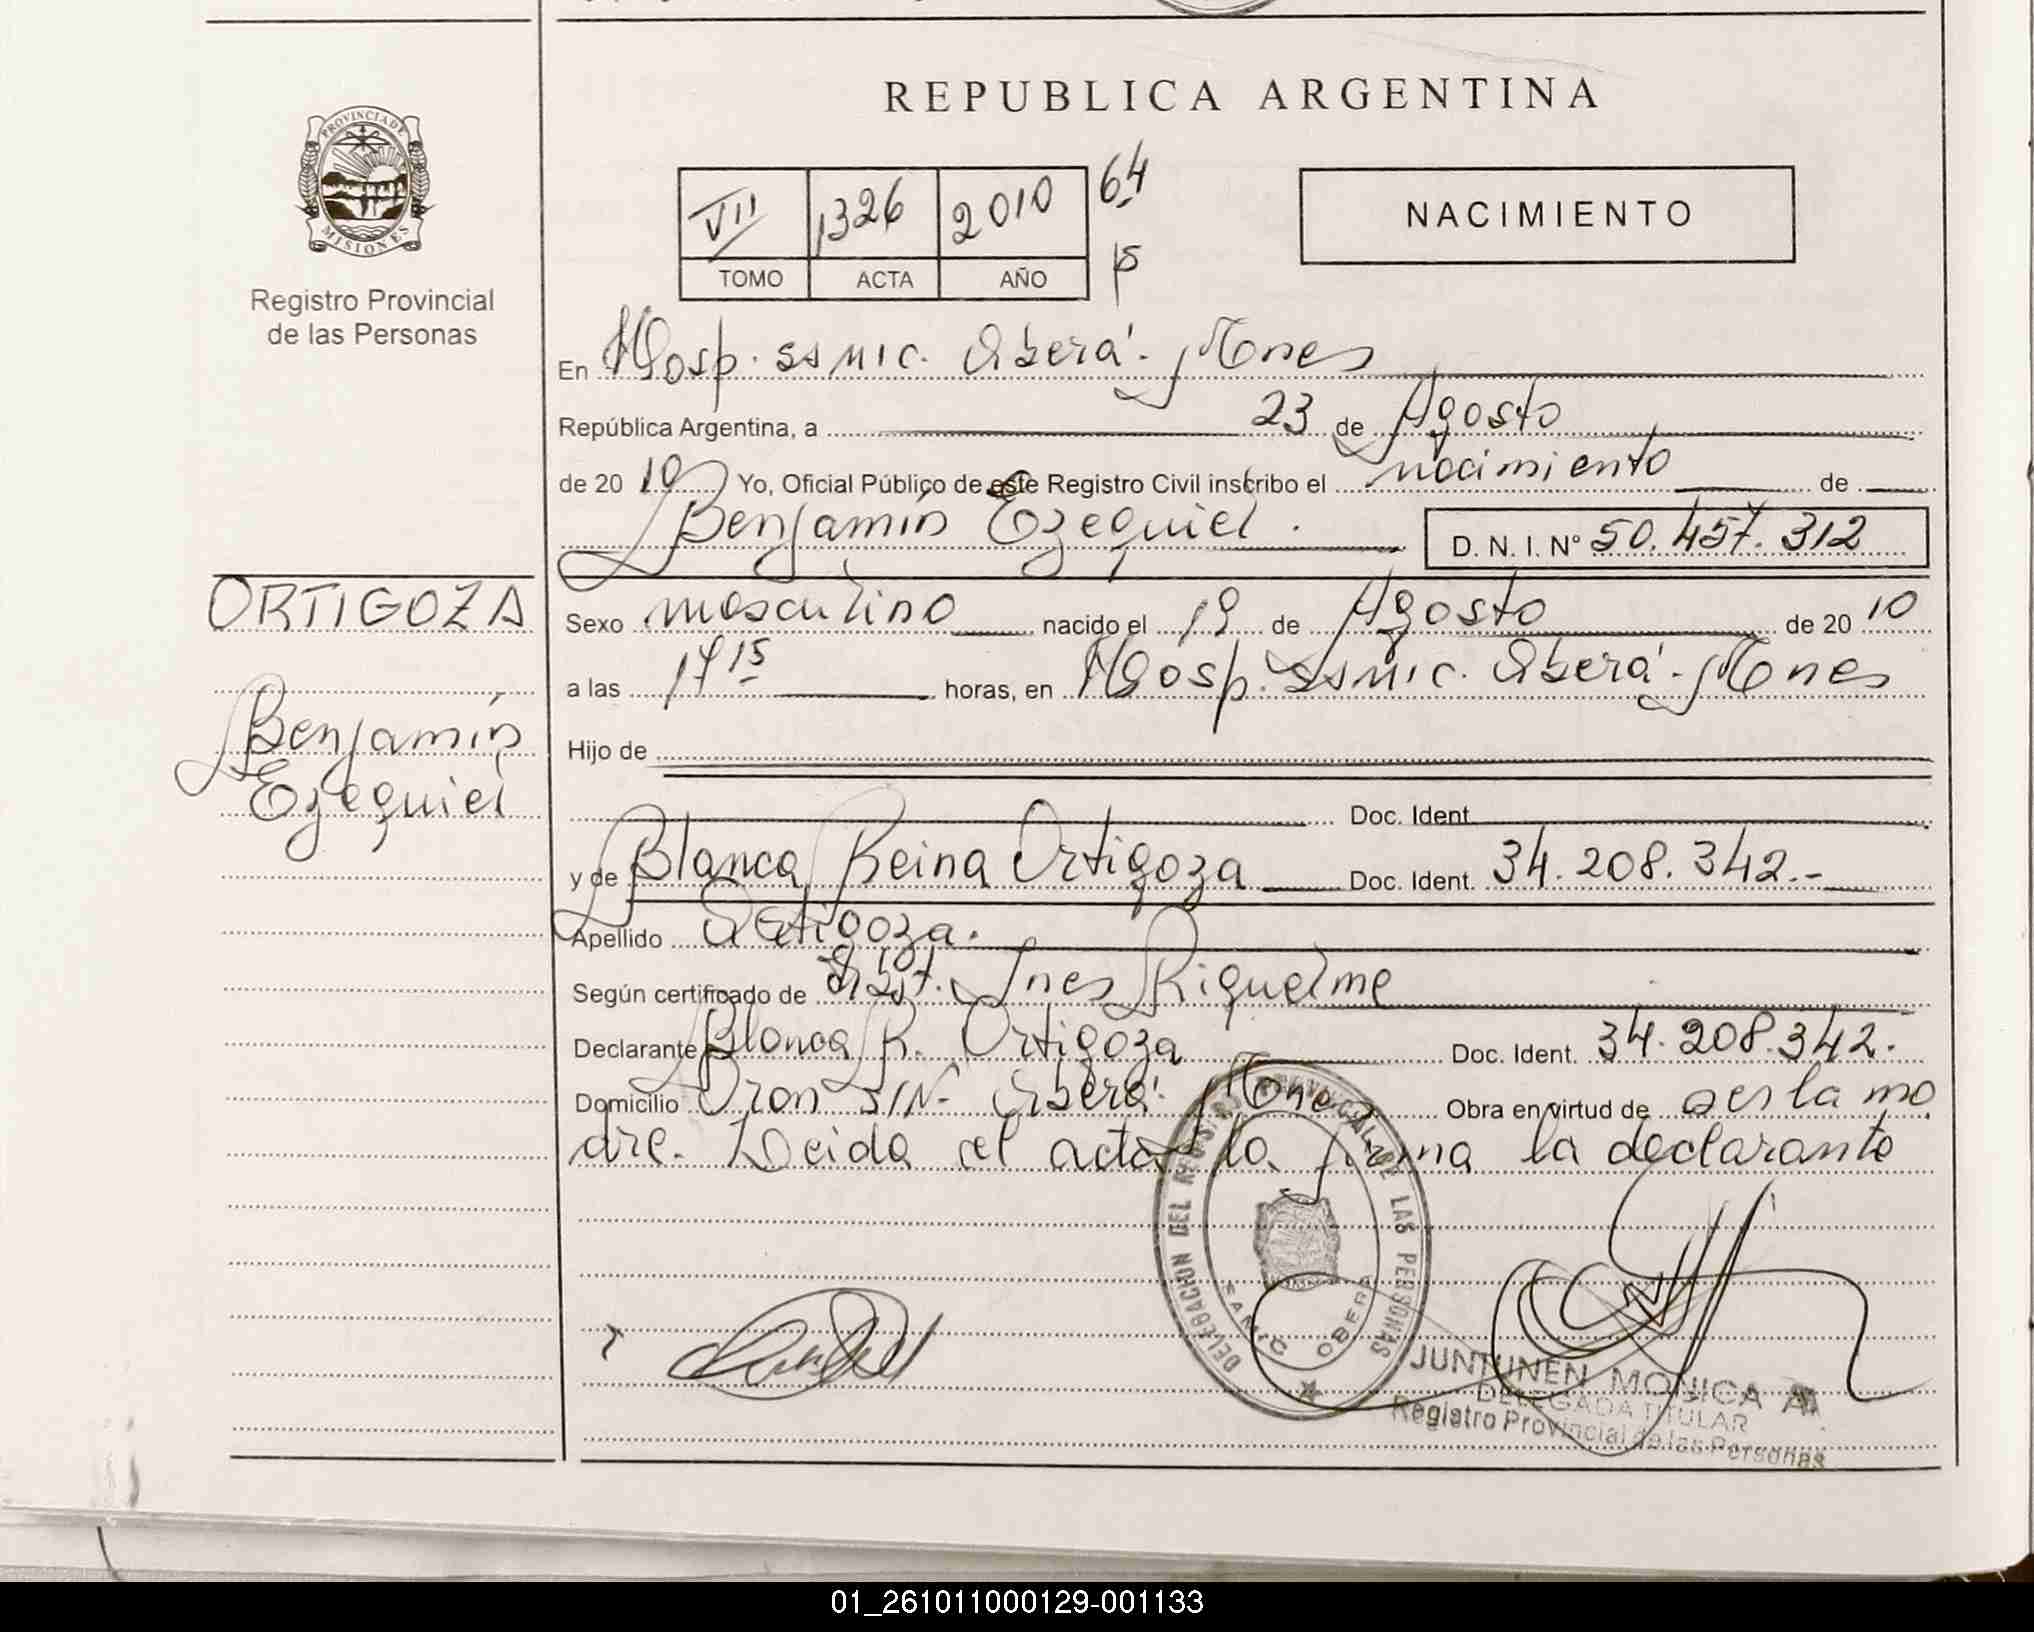 REPUBLICA ARGENTINA
PROVINCIA DE
MISIONES
Registro Provincial
de las Personas
VII 1326 2010 64
TOMO ACTA AÑO
NACIMIENTO
En Hosp. SAMIC. Oberá. Mnes
República Argentina, a 23 de Agosto
de 20 10 Yo, Oficial Público de este Registro Civil inscribo el nacimiento de
Benjamín Ezequiel. D. N. I. Nº 50.457.312
ORTIGOZA
Benjamín
Ezequiel
Sexo masculino nacido el 19 de Agosto de 20 10
a las 17 15 horas, en Hosp. SAMIC. Oberá. Mnes
Hijo de
Doc. Ident.
y de Blanca Reina Ortigoza Doc. Ident. 34.208.342.-
Apellido Ortigoza.
Según certificado de Obst. Ines Riquelme
Declarante Blanca R. Ortigoza Doc. Ident. 34.208.342.-
Domicilio Oron S/N. Oberá. Mnes Obra en virtud de ser la ma
dre. Leida el acta la firma la declarante
DELEGACION DEL REGISTRO PROVINCIAL DE LAS PERSONAS
SAMIC OBERA
JUNTUNEN MONICA A.
DELEGADA TITULAR
Registro Provincial de las Personas
01_261011000129-001133